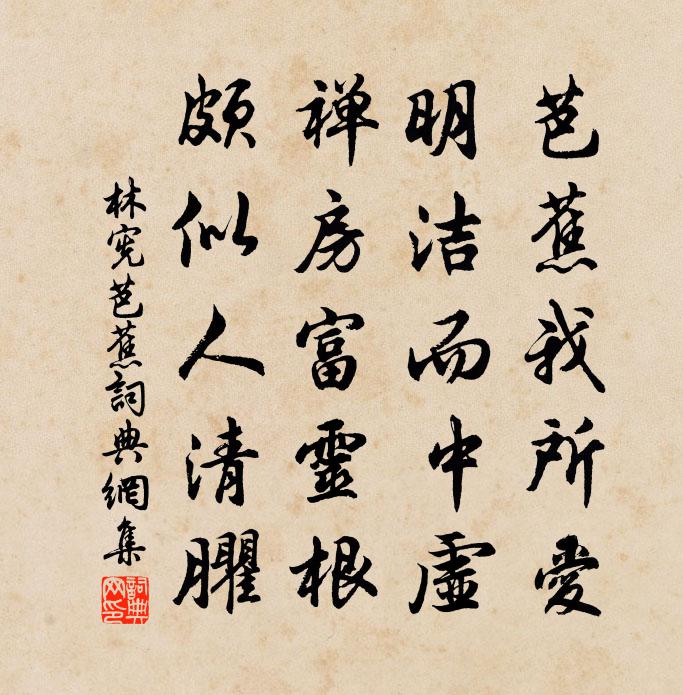 芭蕉我所愛
明洁而中虛
禅房富靈根
頗似人清臞
林宪芭蕉詞典網集
詞典網印